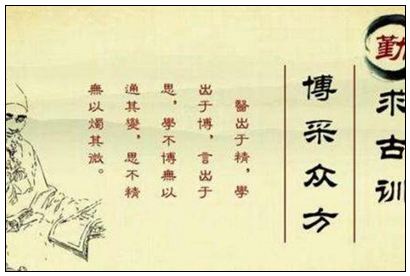 勤求古训
博采众方
醫出于精，學
出于博，言出于
思，學不博無以
通其變，思不精
無以燭其微。